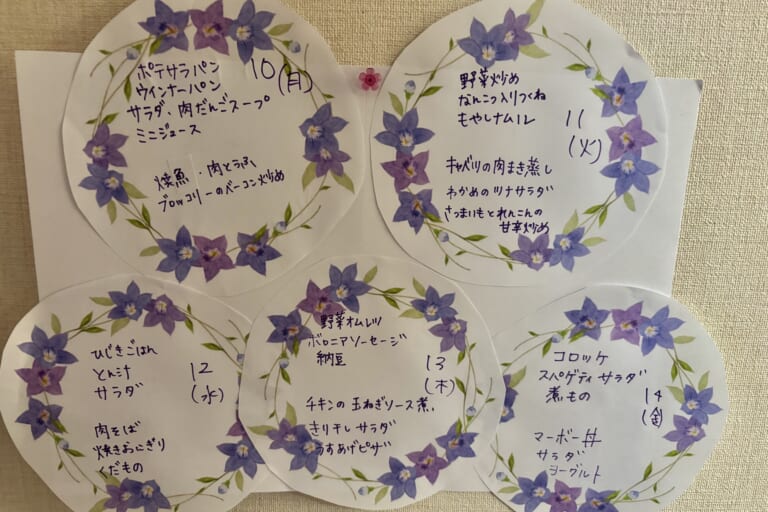 ポテサラパン
ウインナーパン
サラダ、肉だんごスープ
ミニジュース
10(月)
焼魚・肉とうふ
ブロッコリーのベーコン炒め
野菜炒め
なんこつ入りつくね
もやしナムル
11
(火)
キャベツの肉まき蒸し
わかめのツナサラダ
さつまいもとれんこんの
甘辛炒め
ひじきごはん
とん汁
サラダ
12
(水)
肉そば
焼きおにぎり
くだもの
野菜オムレツ
ボロニアソーセージ
納豆
13
(木)
チキンの玉ねぎソース煮
きり干しサラダ
うすあげピザ
コロッケ
スパゲティサラダ
煮もの
14
(金)
マーボー丼
サラダ
ヨーグルト